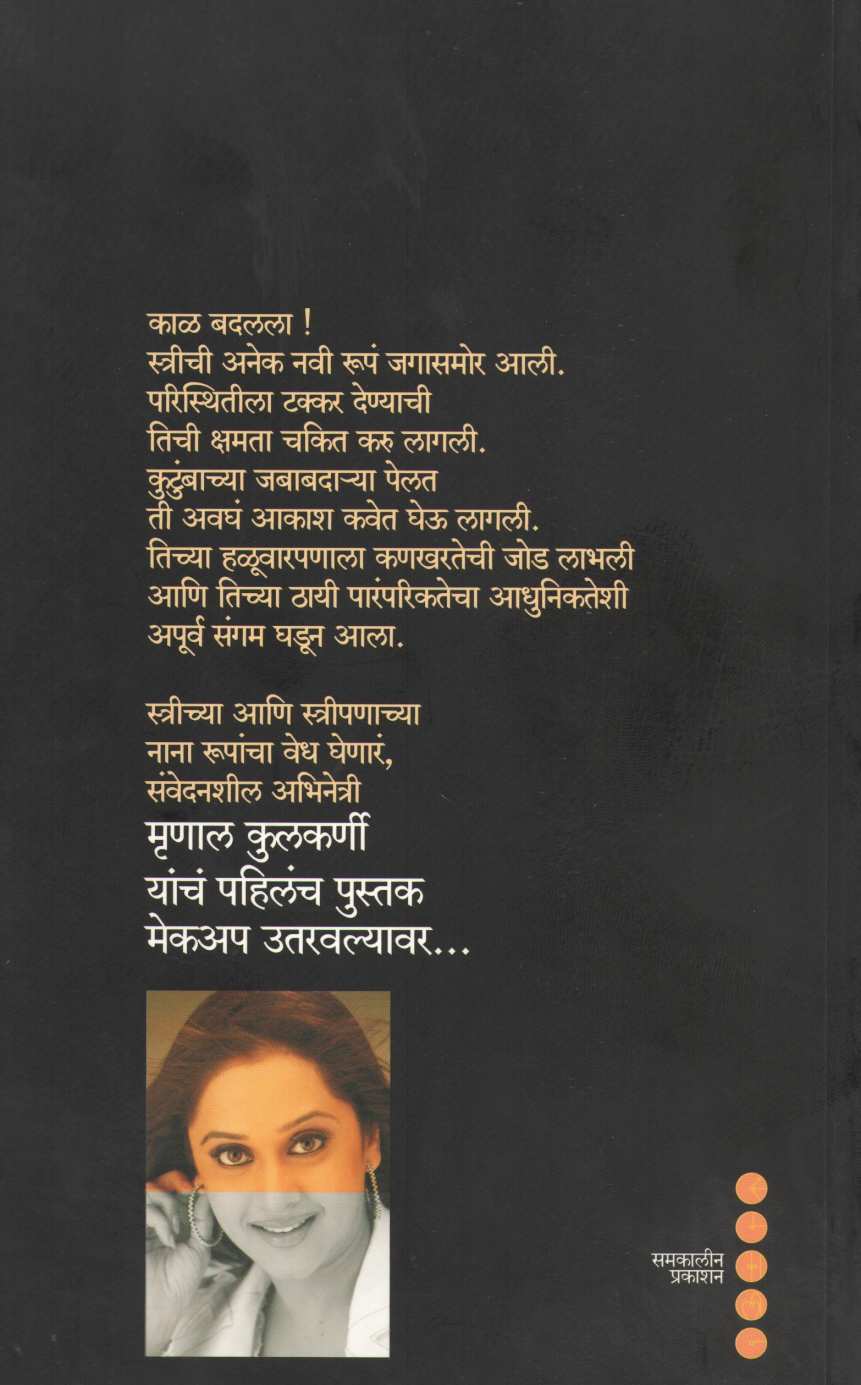 काळ बदलला !
स्त्रीची अनेक नवी रूपं जगासमोर आली.
परिस्थितीला टक्कर देण्याची
तिची क्षमता चकित करु लागली.
कुटुंबाच्या जबाबदाऱ्या पेलत
ती अवघं आकाश कवेत घेऊ लागली.
तिच्या हळूवारपणाला कणखरतेची जोड लाभली
आणि तिच्या ठायी पारंपरिकतेचा आधुनिकतेशी
अपूर्व संगम घडून आला.
स्त्रीच्या आणि स्त्रीपणाच्या
नाना रूपांचा वेध घेणारं,
संवेदनशील अभिनेत्री
मृणाल कुलकर्णी
यांचं पहिलंच पुस्तक
मेकअप उतरवल्यावर...
समकालीन
प्रकाशन